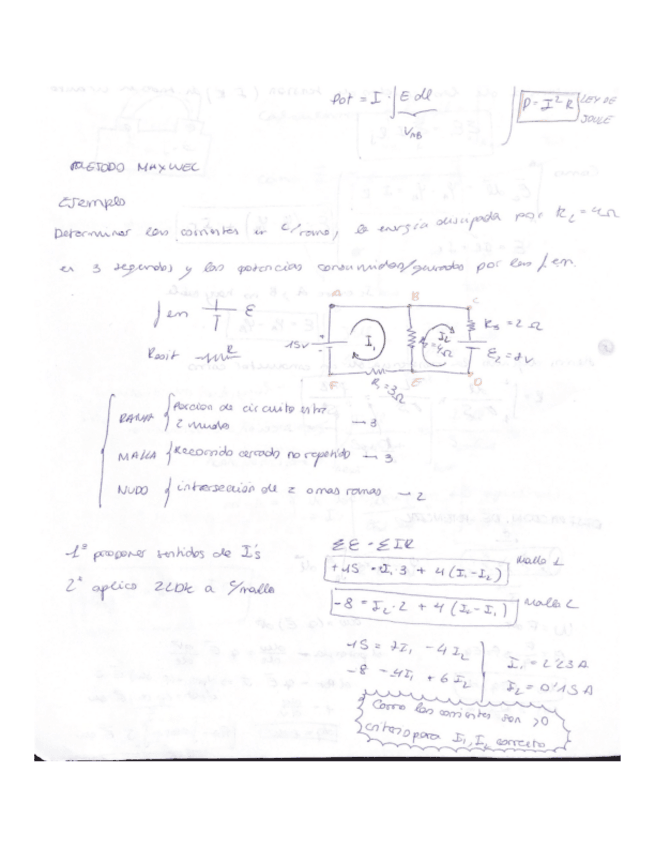 Pot = I · ∫ E dl
V_AB
P = I² R
LEY DE JOULE
METODO MAXWEL
Ejemplo
Determinar las corrientes en c/rama, la energia disipada por R2=4Ω
en 3 segundos y las potencias consumidas/generadas por las f en.
f en
ε
Resit
R
A
B
C
15V
I1
R2=4Ω
I2
R3 = 2 Ω
ε2 = 8V
F
E
D
R1=3Ω
RAMA { Porcion de circuito entre 2 nudos → 3
MALLA { Recorrido cerrado no repetido → 3
NUDO { intersección de 2 o mas ramas → 2
1º proponer sentidos de I's
2º aplico 2LDK a c/malla
Σε = ΣIR
+15 = I1 3 + 4 (I1-I2)
Malla 1
-8 = I2·2 + 4 (I2-I1)
Malla 2
15 = 7I1 - 4I2
-8 = -4I1 + 6I2
I1 = 2'23A
I2 = 0'15A
Como las corrientes son >0
criterio para I1, I2 correcto